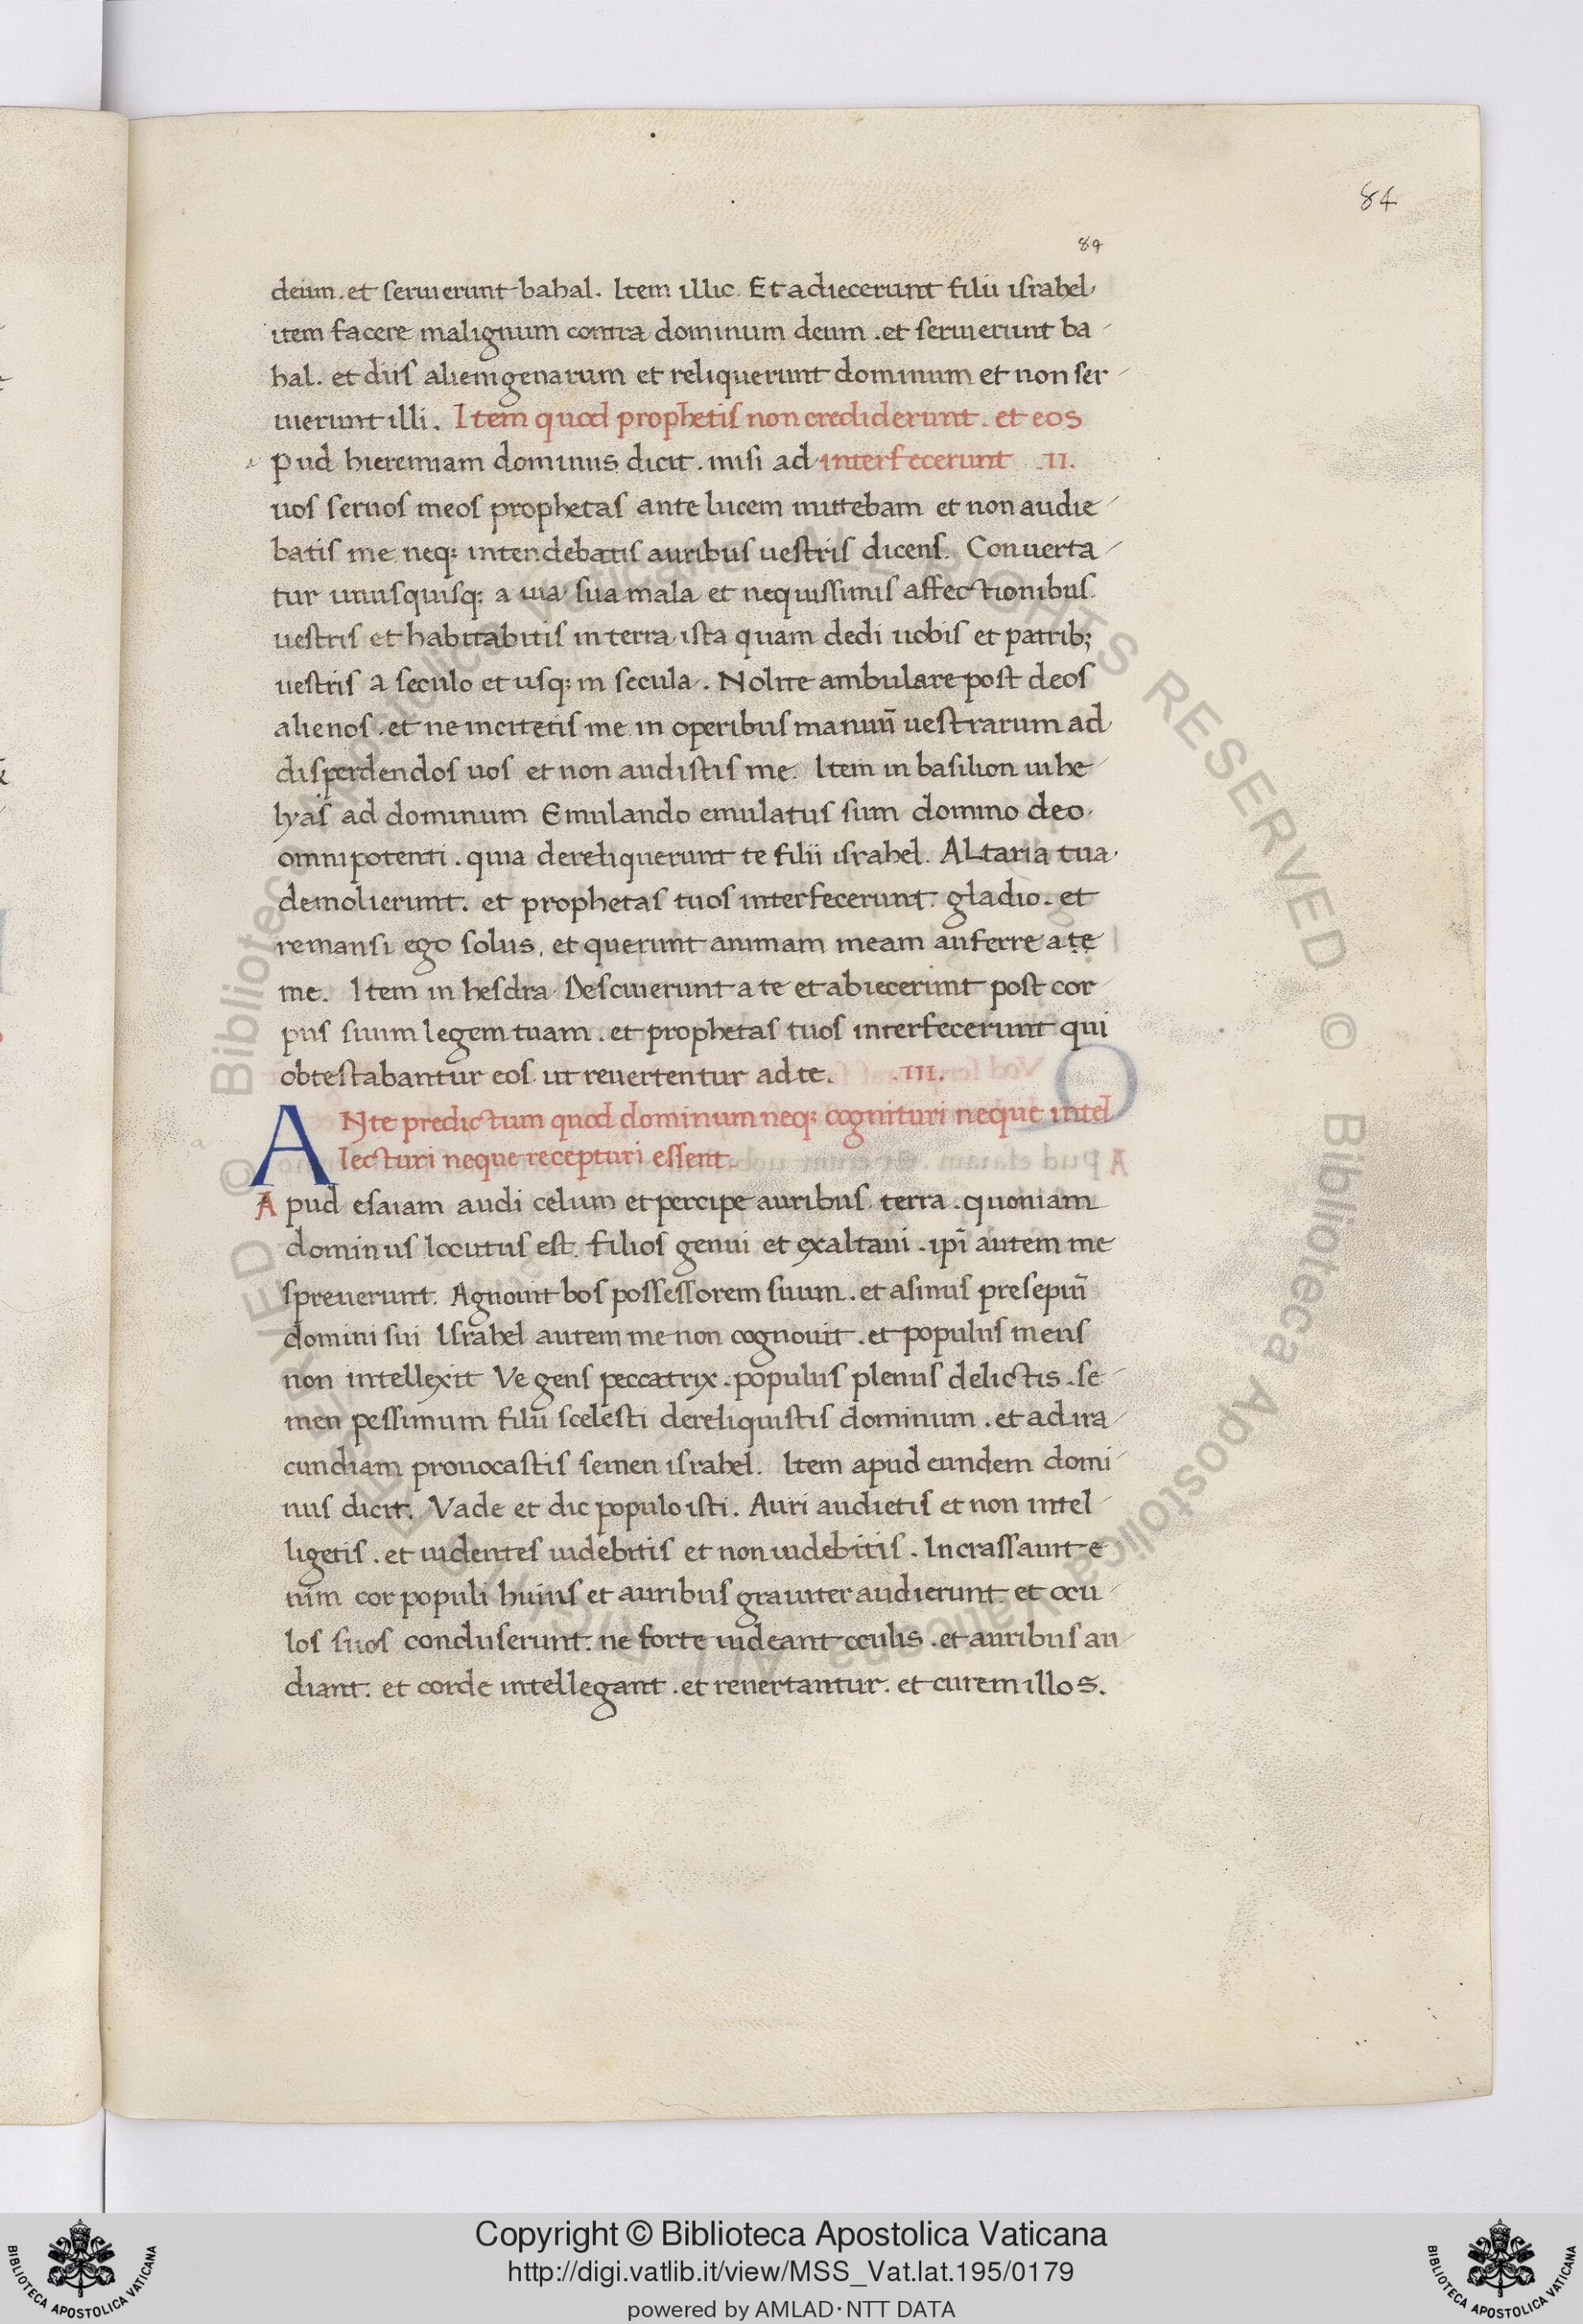 84
84
deum. et seruierunt bahal. Item illic. Et adiecerunt filii israhel
item facere malignum contra dominum deum. et seruierunt ba
hal. et diis alienigenarum et reliquerunt dominum et non ser
uierunt illi. Item quod prophetis non crediderunt. et eos
a Pud hieremiam dominus dicit. misi ad interfecerunt .II.
uos seruos meos prophetas ante lucem mittebam et non audie
batis me neq; intendebatis auribus uestris dicens. Conuerta
tur unusquisq; a uia sua mala et nequissimis affectionibus
uestris et habitabitis in terra ista quam dedi uobis et patrib;
uestris a seculo et usq; in secula. Nolite ambulare post deos
alienos. et ne incitetis me in operibus manuū uestrarum ad
disperdendos uos et non audistis me. Item in basilion iii he
lyas ad dominum Emulando emulatus sum domino deo
omnipotenti. quia dereliquerunt te filii israhel. Altaria tua
demolierunt. et prophetas tuos interfecerunt gladio. et
remansi ego solus. et querunt animam meam auferre a te
me. Item in hesdra. Desciuierunt a te et abiecerunt post cor
pus suum legem tuam. et prophetas tuos interfecerunt qui
obtestabantur eos ut reuertentur ad te. .III.
ANte predictum quod dominum neq; cognituri neque intel
lecturi neque recepturi essent.
Apud esaiam audi celum et percipe auribus terra. quoniam
dominus locutus est. filios genui et exaltaui. ip̄i autem me
spreuerunt. Agnouit bos possessorem suum. et asinus presepiū
domini sui Israhel autem me non cognouit. et populus meus
non intellexit Ve gens peccatrix. populus plenus delictis. se
men pessimum filii scelesti dereliquistis dominum. et ad ira
cundiam prouocastis semen israhel. Item apud eundem domi
nus dicit. Vade et dic populo isti. Auri audietis et non intel
ligetis. et uidentes uidebitis et non uidebitis. Incrassauit e
nim cor populi huius et auribus grauiter audierunt et ocu
los suos concluserunt. ne forte uideant oculis. et auribus au
diant. et corde intellegant. et reuertantur. et curem illos.
Copyright © Biblioteca Apostolica Vaticana
http://digi.vatlib.it/view/MSS_Vat.lat.195/0179
powered by AMLAD·NTT DATA
BIBLIOTECA APOSTOLICA VATICANA
BIBLIOTECA APOSTOLICA VATICANA